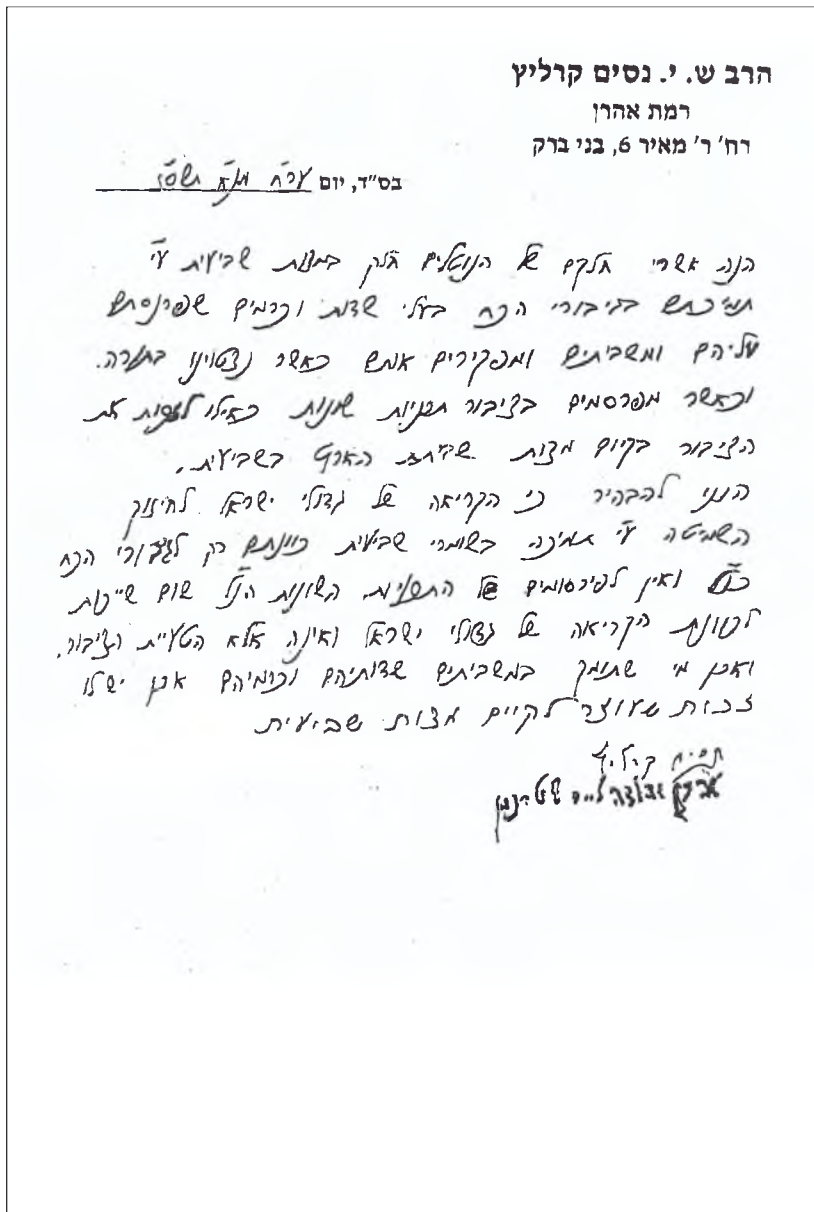 הרב ש. י. נסים קרליץ
רמת אהרן
רח' ר' מאיר 6, בני ברק
בס"ד, יום ער"ח מנ"א תשס"ז
הנה אשרי חלקם של הנוטלים חלק במצות שביעית ע"י
תמיכתם בגיבורי הכח בעלי שדות וכרמים שפרנסתם
עליהם ומשביתים ומפקירים אותם כאשר נצטוינו בתורה.
וכאשר מפרסמים בציבור תכניות שונות כאילו לזכות את
הציבור בקיום מצות שביתת הארץ בשביעית.
הנני להבהיר כי הקריאה של גדולי ישראל לחיזוק
השמיטה ע"י תמיכה בשומרי שביעית כוונתם רק לגיבורי הכח
כנ"ל ואין לפירסומים של התכניות השונות הנ"ל שום שייכות
לכוונת הקריאה של גדולי ישראל ואינה אלא הטעיית הציבור.
ואכן מי שתומך במשביתים שדותיהם וכרמיהם אכן יש לו
זכות שעוזר לקיים מצות שביעית
נסים קרליץ
שטינמן